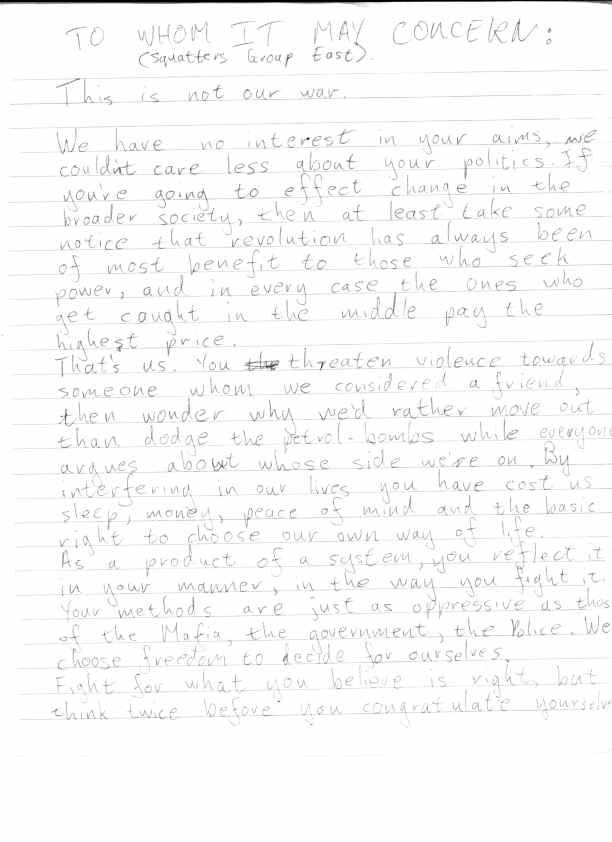 TO WHOM IT MAY CONCERN:
(Squatters Group East).
This is not our war.
We have no interest in your aims, we
couldn't care less about your politics. If
you're going to effect change in the
broader society, then at least take some
notice that revolution has always been
of most benefit to those who seek
power, and in every case the ones who
get caught in the middle pay the
highest price.
That's us. You threaten violence towards
someone whom we considered a friend,
then wonder why we'd rather move out
than dodge the petrol-bombs while everyone
argues about whose side we're on. By
interfering in our lives you have cost us
sleep, money, peace of mind and the basic
right to choose our own way of life.
As a product of a system, you reflect it
in your manner, in the way you fight it.
Your methods are just as oppressive as thos
of the Mafia, the government, the Police. We
choose freedom to decide for ourselves.
Fight for what you believe is right, but
think twice before you congratulate yourselve